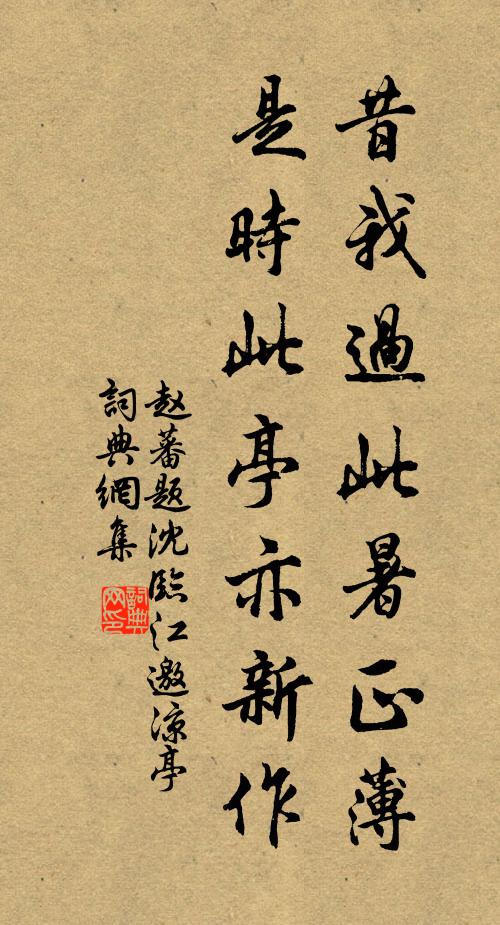 昔我過此暑正薄
是時此亭亦新作
赵蕃题沈臨江邀凉亭
詞典網集
詞典網印